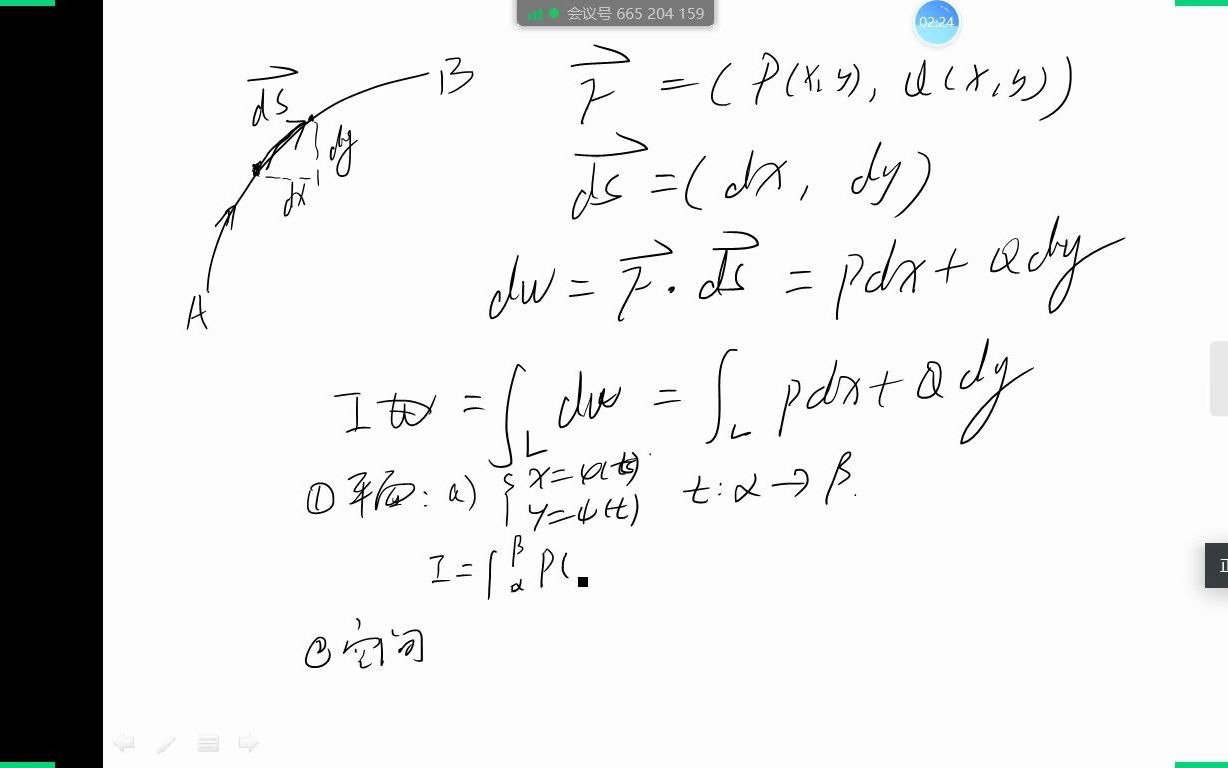 会议号 665 204 159
02:24
B
ds
dy
dx
A
F = (P(x,y), Q(x,y))
ds = (dx, dy)
dw = F · ds = Pdx + Qdy
I = ∫_L dw = ∫_L Pdx + Qdy
① 平面: a) { x=φ(t) t: α → β.
y=ψ(t)
I = ∫_α^β P(
② 空间
正